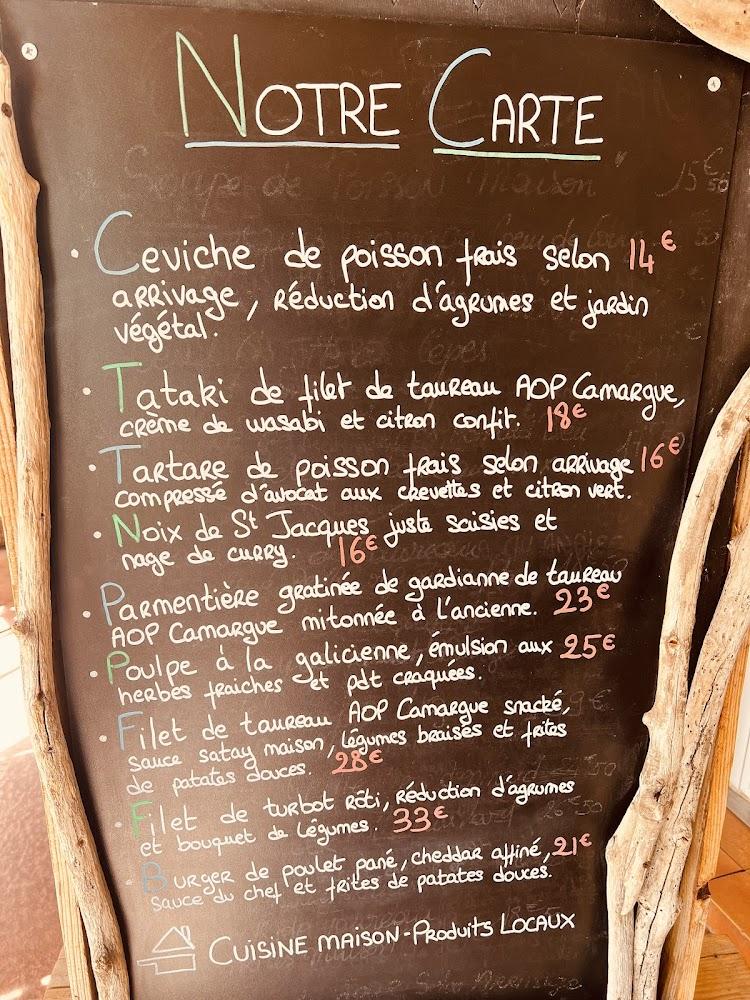 NOTRE CARTE
Soupe de Poisson Maison 15€50
• Ceviche de poisson frais selon 14€
arrivage, réduction d'agrumes et jardin
végétal.
• Tataki de filet de taureau AOP Camargue,
crème de wasabi et citron confit. 18€
• Tartare de poisson frais selon arrivage 16€
compressé d'avocat aux crevettes et citron vert.
• Noix de St Jacques juste saisies et
nage de curry. 16€
• Parmentière gratinée de gardianne de taureau
AOP Camargue mitonnée à l'ancienne. 23€
• Poulpe à la galicienne, émulsion aux 25€
herbes fraiches et pdt craquées.
• Filet de taureau AOP Camargue snacké,
sauce satay maison, légumes braisés et frites
de patates douces. 28€
• Filet de turbot rôti, réduction d'agrumes
et bouquet de légumes. 33€
• Burger de poulet pané, cheddar affiné, 21€
sauce du chef et frites de patates douces.
CUISINE MAISON-PRODUITS LOCAUX